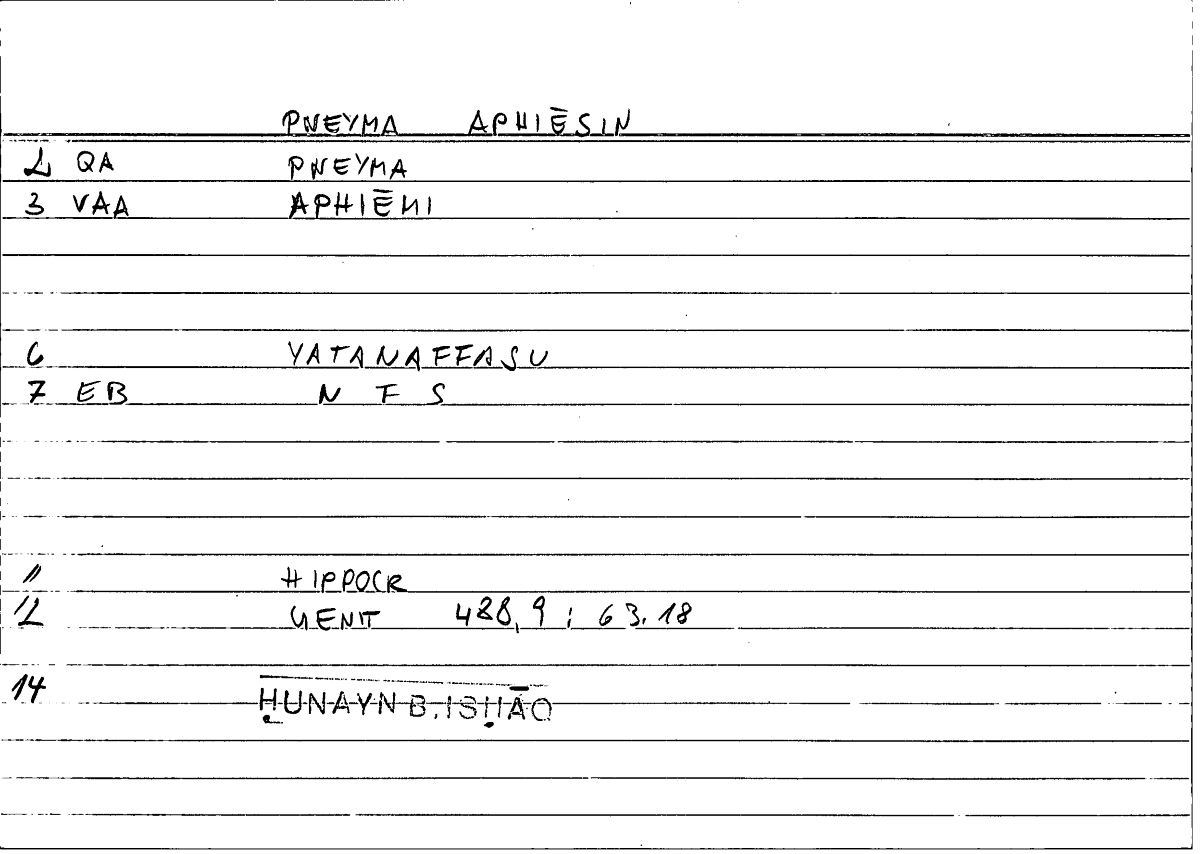 PNEYMA APHIĒSIN
2 QA PNEYMA
3 VAA APHIĒMI
6 YATANAFFASU
7 EB N F S
11 HIPPOCR
12 GENIT 488,9 ; 63.18
14 ḤUNAYN B. ISḤĀQ